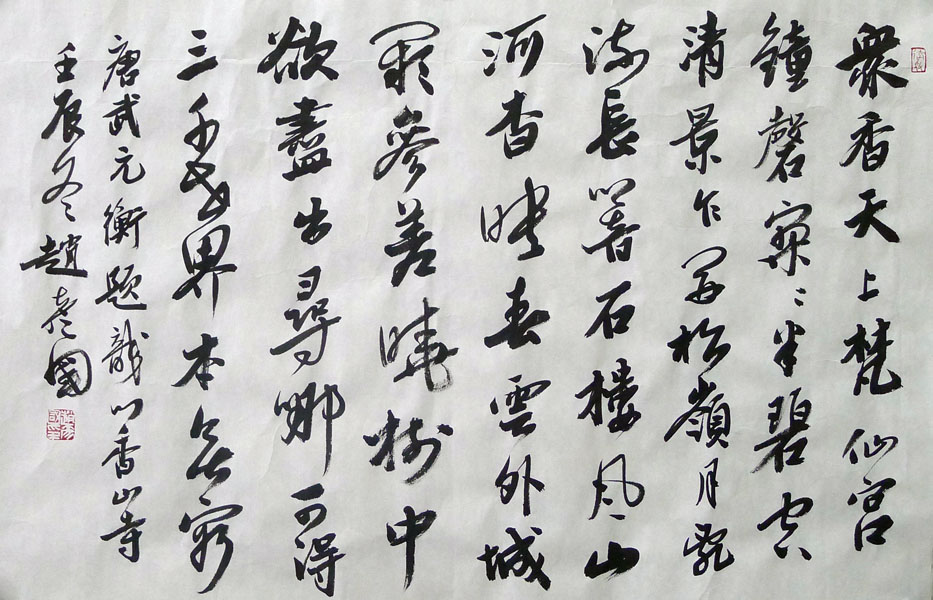 衆香天上梵仙宮
鐘磬寥〻半碧空
清景乍開松嶺月亂
流長響石樓風山
河杳映春雲外城
闕參差曉樹中
欲盡出尋那可得
三千世界本無窮
唐武元衡題龍門香山寺
壬辰冬趙國